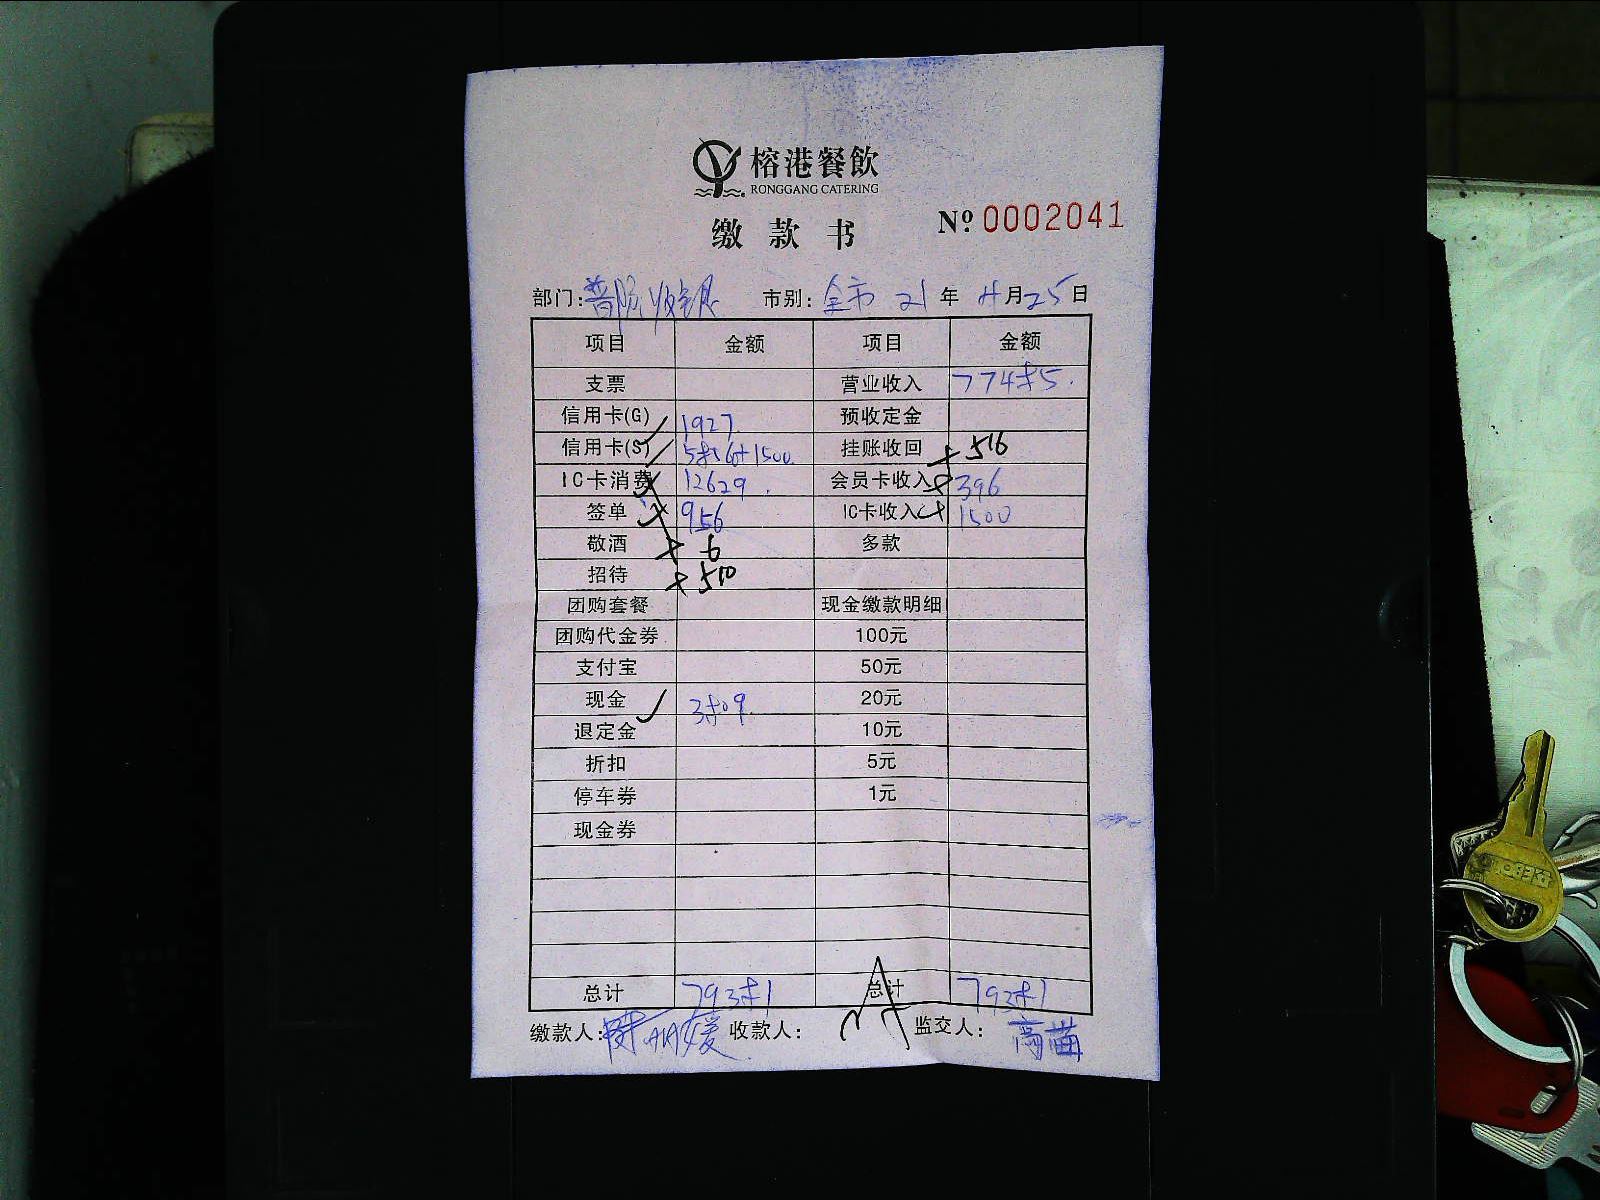 榕港餐飲
RONGGANG CATERING
缴款书
Nº 0002041
部门: 市别: 全市 21 年 4 月 25 日
项目 金额 项目 金额
支票 营业收入
信用卡(G) 1927 预收定金
信用卡(S) 挂账收回 516
IC卡消费 12629 会员卡收入 396
签单 956 IC卡收入 1500
敬酒 6 多款
招待 510
团购套餐 现金缴款明细
团购代金券 100元
支付宝 50元
现金 20元
退定金 10元
折扣 5元
停车券 1元
现金券
总计 总计
缴款人: 收款人: 监交人: 高苗